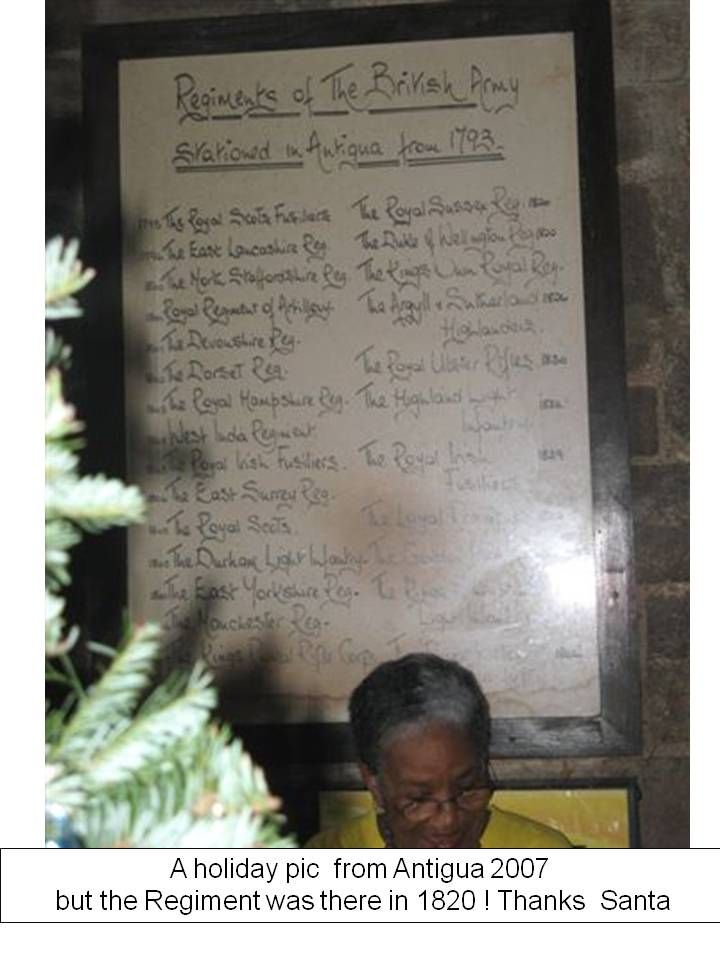 Regiments of The British Army
Stationed in Antigua from 1793.
1793 The Royal Scots Fusiliers
The East Lancashire Reg.
The North Staffordshire Reg
Royal Regiment of Artillery.
The Devonshire Reg.
The Dorset Reg.
The Royal Hampshire Reg.
West India Regiment
The Royal Irish Fusiliers.
The East Surrey Reg.
The Royal Scots.
The Durham Light Infantry.
The East Yorkshire Reg.
The Manchester Reg.
The Kings Royal Rifle Corps
The Royal Sussex Reg. 1820
The Duke of Wellington Reg 1820
The Kings Own Royal Reg.
The Argyll & Sutherland 1826
Highlanders.
The Royal Ulster Rifles. 1830
The Highland Light
Infantry.
The Royal Irish 1839
Fusiliers
The Loyal
Light Infantry
A holiday pic from Antigua 2007
but the Regiment was there in 1820 ! Thanks Santa